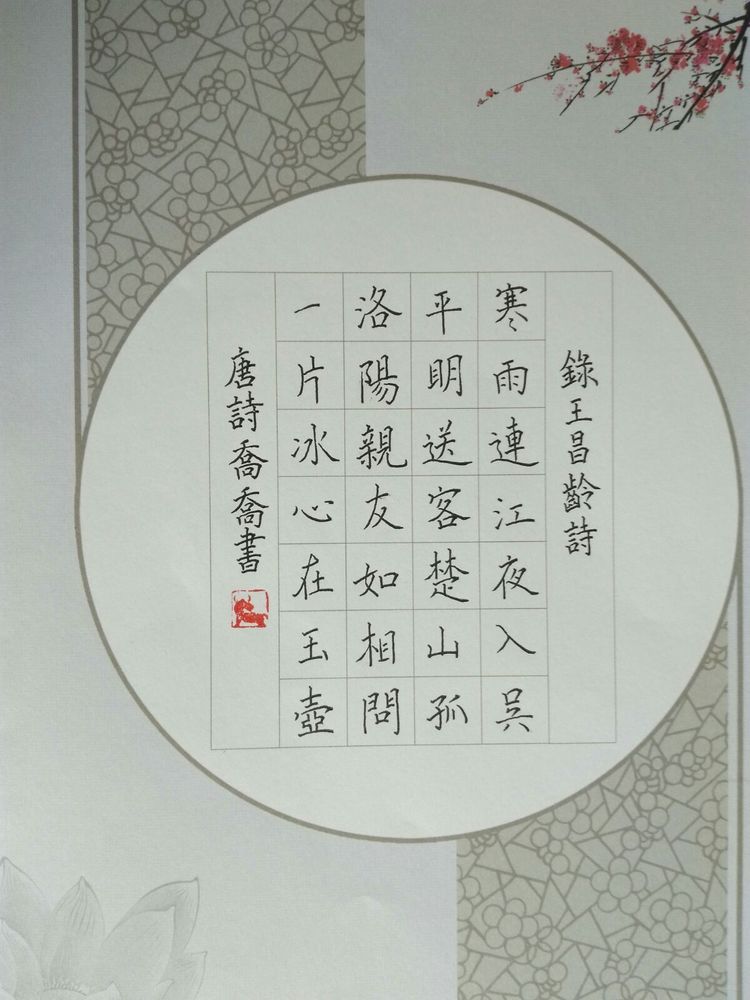 錄王昌齡詩
寒雨連江夜入吳
平明送客楚山孤
洛陽親友如相問
一片冰心在玉壺
唐詩喬喬書